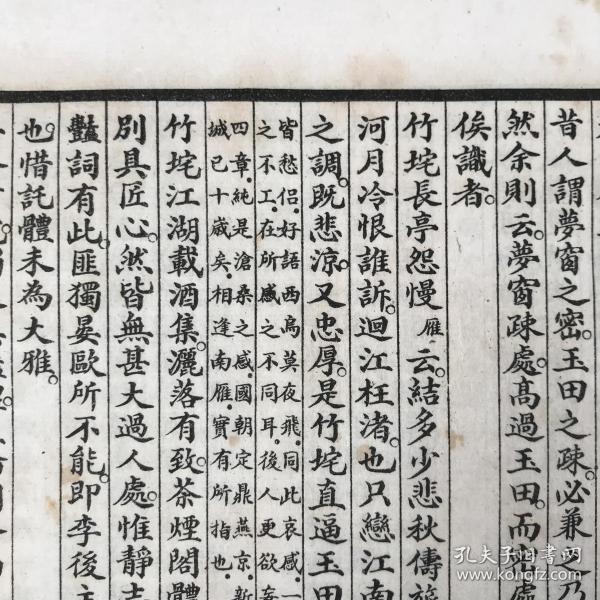 昔人謂夢窗之密。玉田之疎。必兼之乃
然余則云。夢窗疎處。高過玉田。而密處
俟識者。
竹垞長亭怨慢雁。云。結多少悲秋儔旅
河月冷恨誰訴。迴江枉渚。也只戀江南
之調。既悲涼。又忠厚。是竹垞直逼玉田
皆愁侶。好語西烏莫夜飛。同此哀感。一
之不工。在所感之不同耳。後人更欲妄
四章。純是滄桑之感。國朝定鼎燕京。新
城已十歲矣。相逢南雁。實有所指也。
竹垞江湖載酒集。灑落有致。茶煙閣體
別具匠心。然皆無甚大過人處。惟靜志
豔詞有此。匪獨晏歐所不能。即李後主
也。惜託體未為大雅。
孔夫子旧书网
www.kongfz.com